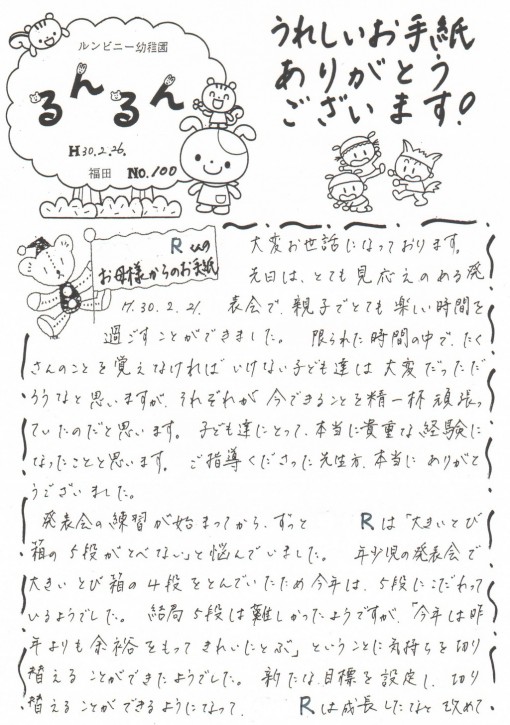 ルンビニー幼稚園
るんるん
H30.2.26.
福田 No.100
うれしいお手紙
ありがとう
ございます!
Rくんの
お母様からのお手紙
H.30.2.21.
大変お世話になっております。
先日は、とても見応えのある発
表会で、親子でとても楽しい時間を
過ごすことができました。 限られた時間の中で、たく
さんのことを覚えなければいけない子ども達は大変だっただ
ろうなと思いますが、それぞれが今できることを精一杯頑張っ
ていたのだと思います。子ども達にとって、本当に貴重な経験に
なったことと思います。 ご指導くださった先生方、本当にありがと
うございました。
発表会の練習が始まってから、ずっと Rは「大きいとび
箱の5段がとべない」と悩んでいました。 年少児の発表会で
大きいとび箱の4段をとんでいたため今年は、5段にこだわって
いるようでした。 結局5段は難しかったようですが、「今年は昨
年よりも余裕をもってきれいにとぶ」ということに気持ちを切り
替えることができたようでした。 新たな目標を設定し、切り
替えることができるようになって、 Rは成長したなと改めて